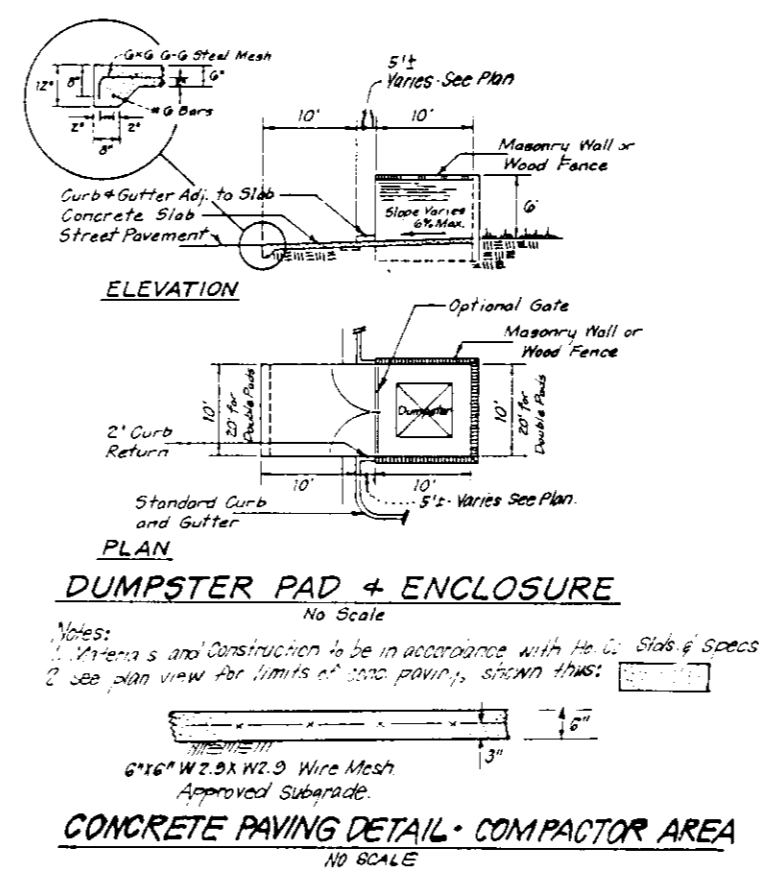 6x6 6-6 Steel Mesh
12"
8"
6"
#6 Bars
2"
2"
8"
5'±
Varies - See Plan
10'
10'
Masonry Wall or
Wood Fence
Curb & Gutter Adj. to Slab
Concrete Slab
Street Pavement
Slope Varies
6% Max.
6'
ELEVATION
Optional Gate
Masonry Wall or
Wood Fence
10'
20' for
Double Pads
Dumpster
10'
20' for
Double Pads
2' Curb
Return
10'
10'
Standard Curb
and Gutter
5'± Varies See Plan.
PLAN
DUMPSTER PAD & ENCLOSURE
No Scale
Notes:
1. Materials and Construction to be in accordance with Ho. Co. Stds. & Specs
2 See plan view for limits of conc. paving, shown thus:
6"
3"
6"x6" W2.9 x W2.9 Wire Mesh.
Approved Subgrade.
CONCRETE PAVING DETAIL - COMPACTOR AREA
NO SCALE